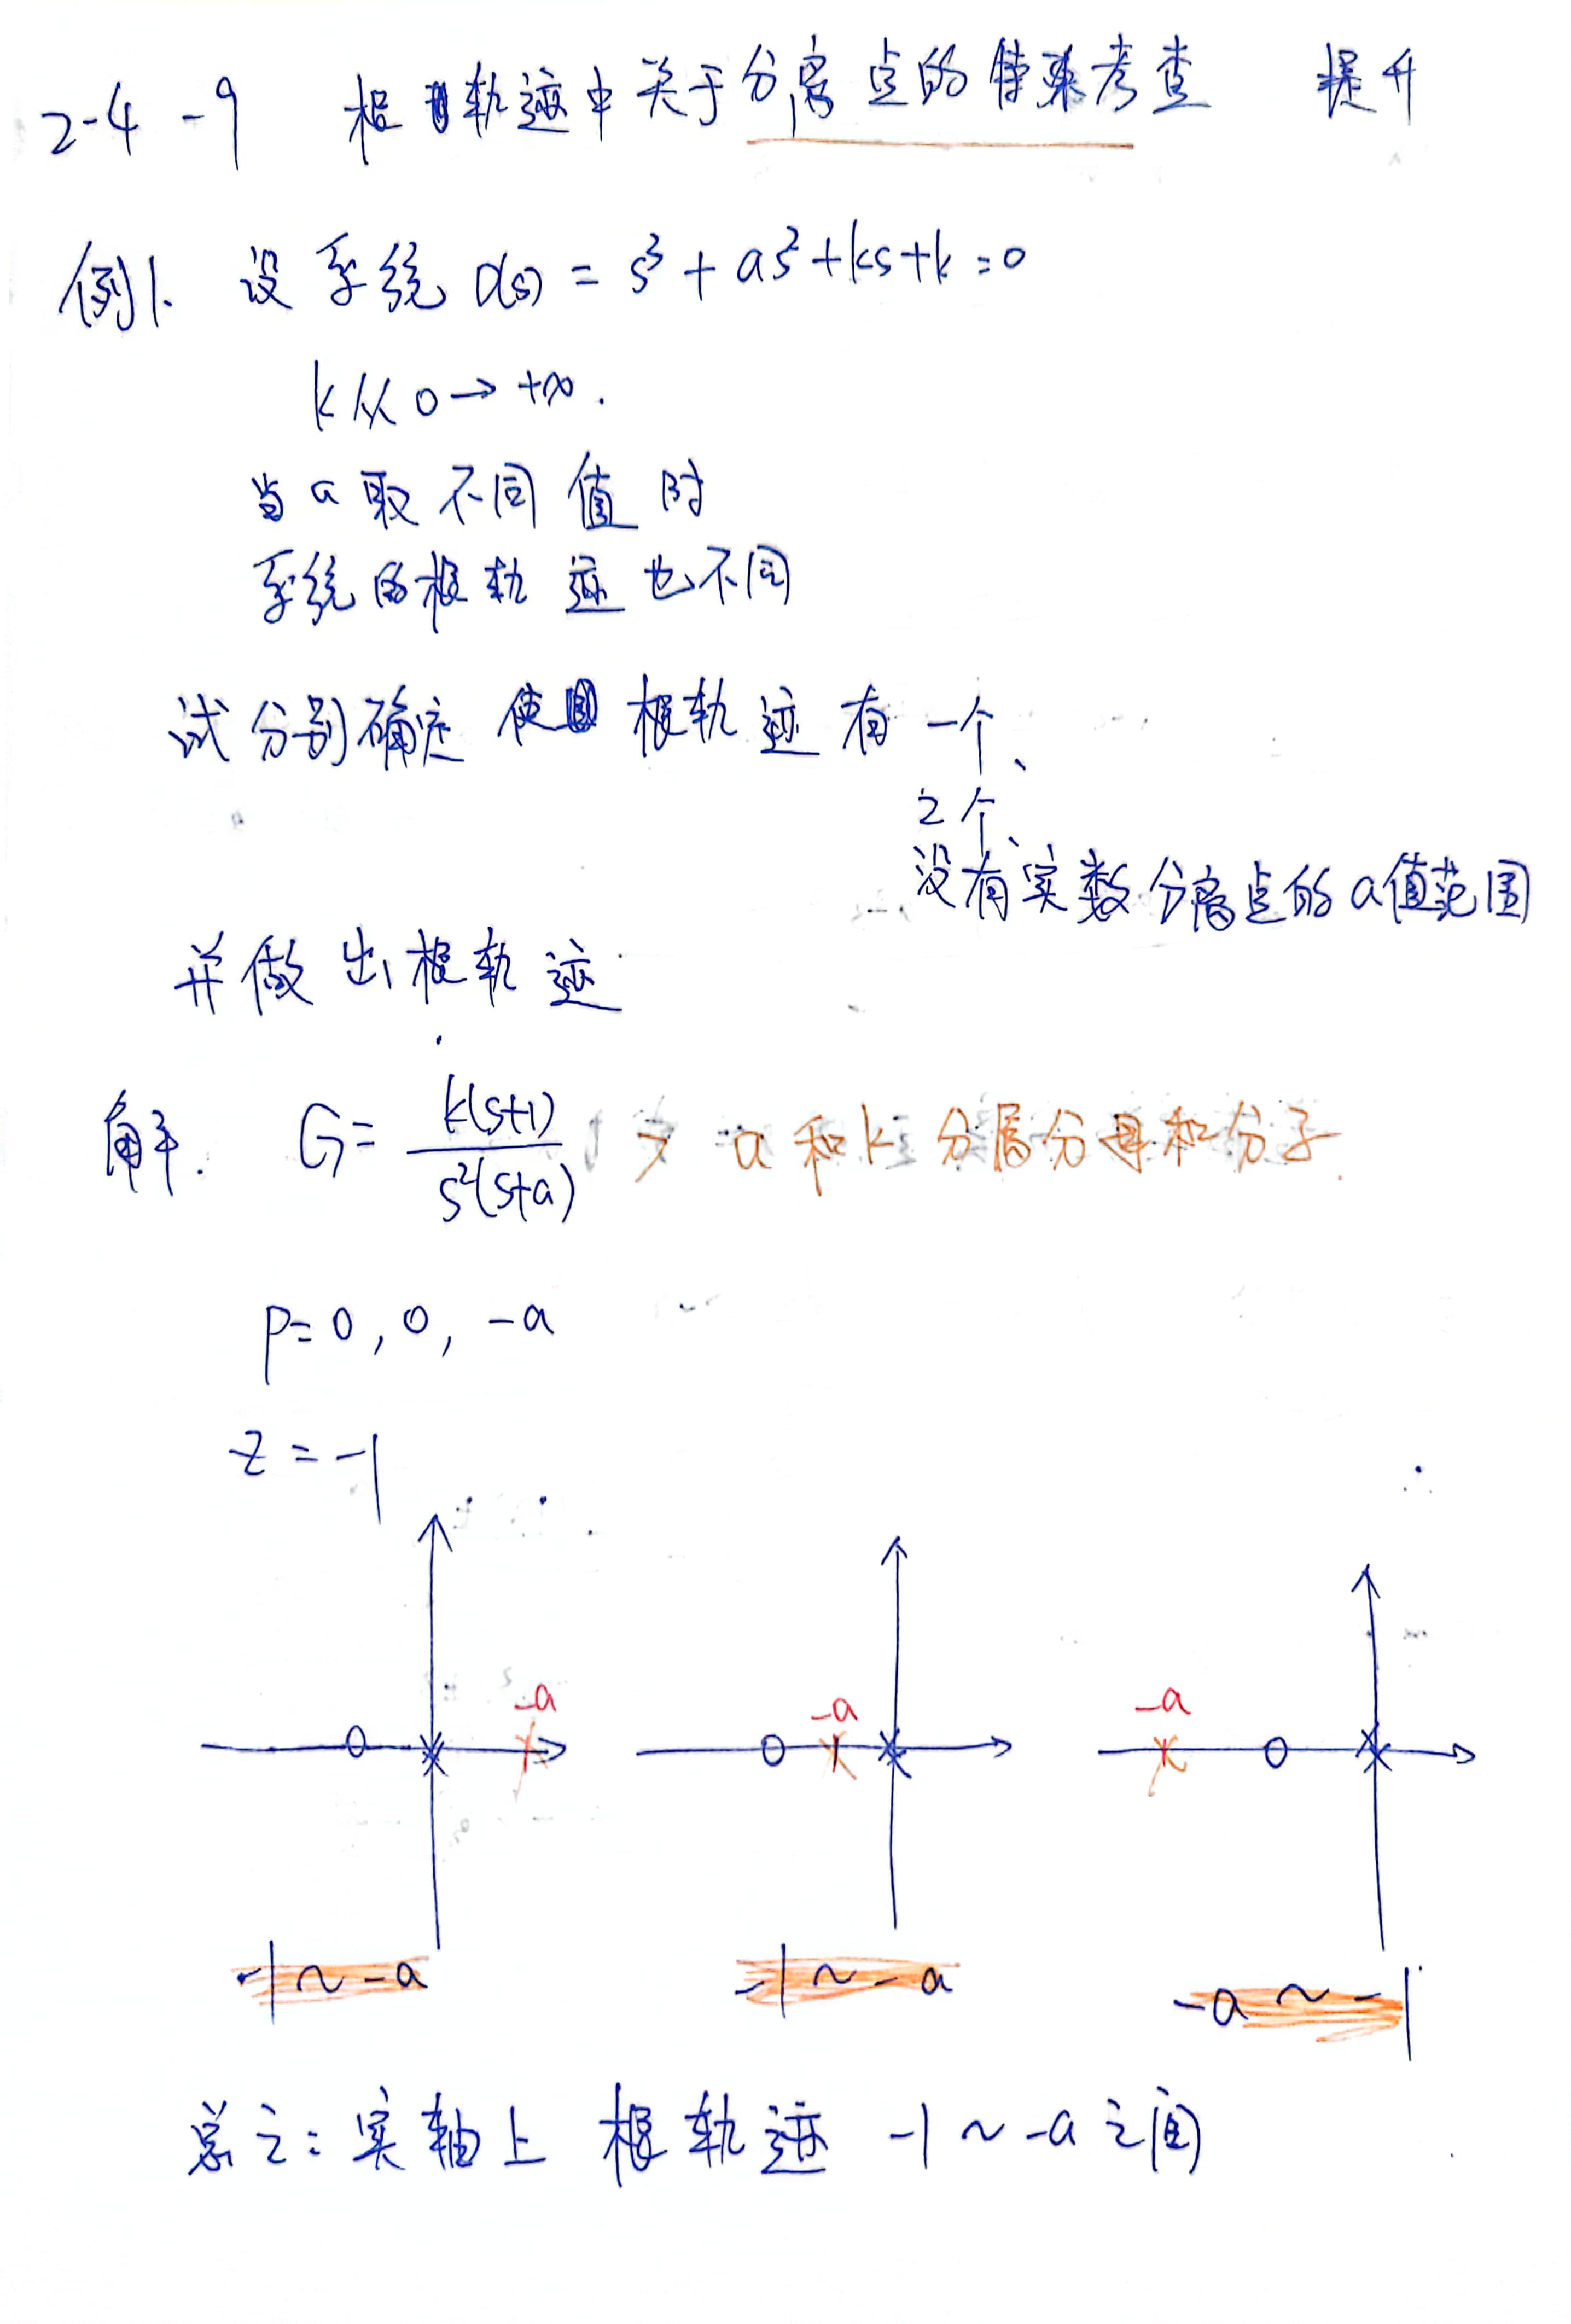 2-4-9 根轨迹中关于分离点的特殊考查 提升
例1. 设系统 D(s) = s³ + as² + ks + k = 0
k从 0 → +∞.
当a取不同值时
系统的根轨迹也不同
试分别确定使 根轨迹有一个、
2个、
没有实数分离点的a值范围
并做出根轨迹
解. G = k(s+1) / s²(s+a) > a和k分属分母和分子.
P = 0, 0, -a
z = -1
-a -a -a
-1 ~ -a -1 ~ -a -a ~ -1
总之: 实轴上 根轨迹 -1 ~ -a 之间